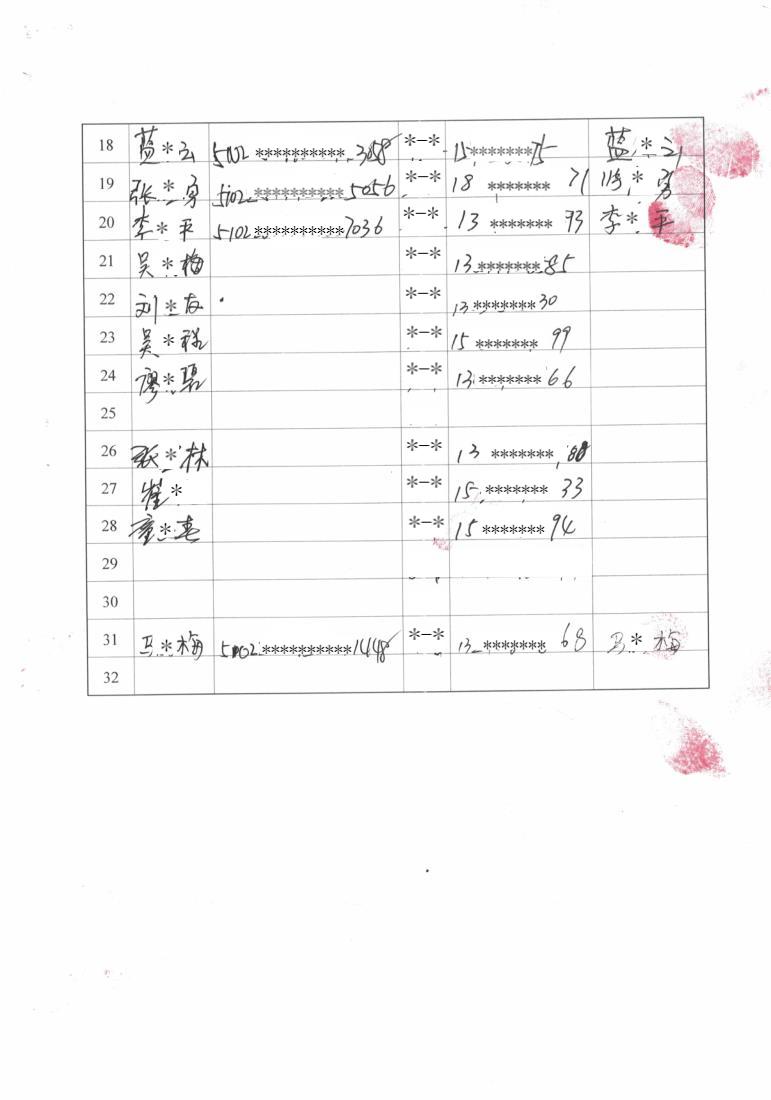 18 蓝*云 5102**********3058 *-* 15*******75 蓝*云
19 张*勇 5102**********5056 *-* 18*******71 张*勇
20 李*平 5102**********7036 *-* 13*******93 李*平
21 吴*梅 *-* 13*******85
22 刘*友 *-* 13*******30
23 吴* *-* 15*******99
24 廖*碧 *-* 13*******66
25
26 张*林 *-* 13*******88
27 崔* *-* 15*******33
28 童*春 *-* 15*******94
29
30
31 马*梅 5102**********1448 *-* 13*******68 马*梅
32